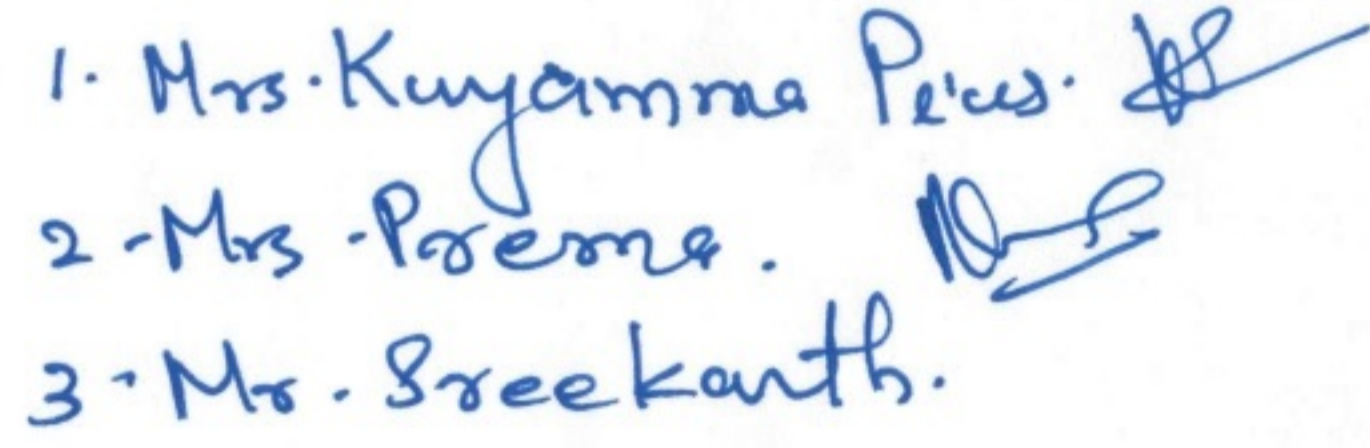 1. Mrs. Kuyamma Peius.
2 - Mrs . Prema .
3 - Mr . Sreekanth.